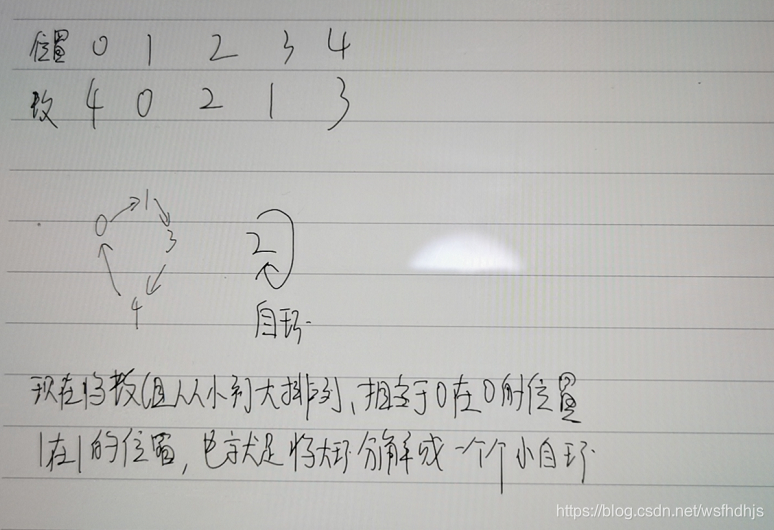 位置 0 1 2 3 4
数 4 0 2 1 3
0 1 3 4
2
自环.
现在将数组从小到大排列、相当于0在0的位置
1在1的位置,也就是将大环分解成一个个小自环
https://blog.csdn.net/wsfhdhjs